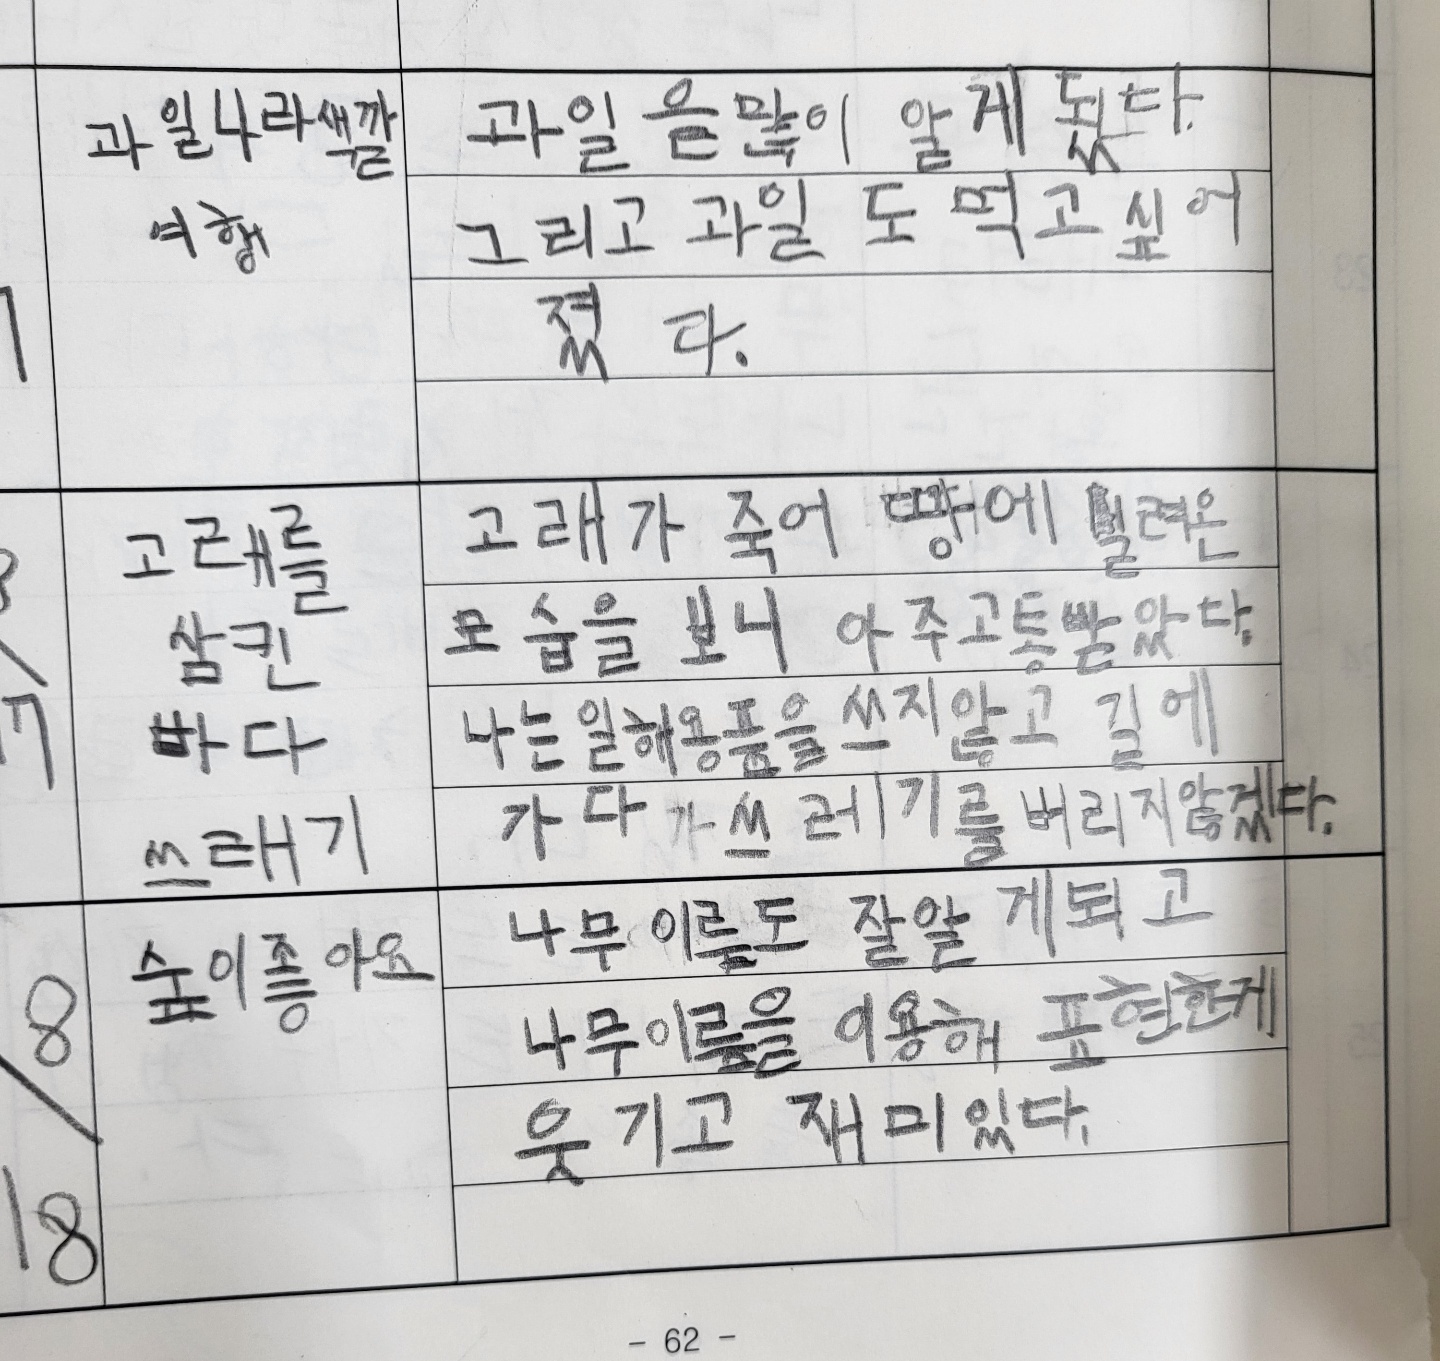 과일나라색깔
여행
과일 을많이 알게 됬다.
그리고 과일 도 먹고싶어
졌 다.
7
고래를
삼킨
바다
쓰래기
고래가 죽어 땅에 밀려온
모습을 보니 아주고통빨았다.
나는일해용품을쓰지않고 길에
가다가쓰레기를버리지않겠다.
17
8
18
숲이좋아요
나무이름도 잘알 게되고
나무이름을 이용해 표현한게
웃기고 재미있다.
- 62 -